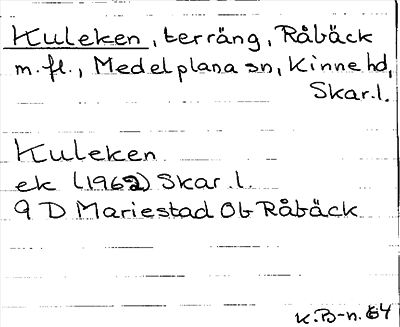 Kuleken, terräng, Råbäck
m.fl., Medelplana sn, Kinne hd,
Skar.l.
Kuleken
ek (1962) Skar.l.
9 D Mariestad Ob Råbäck
K.B-n. 64